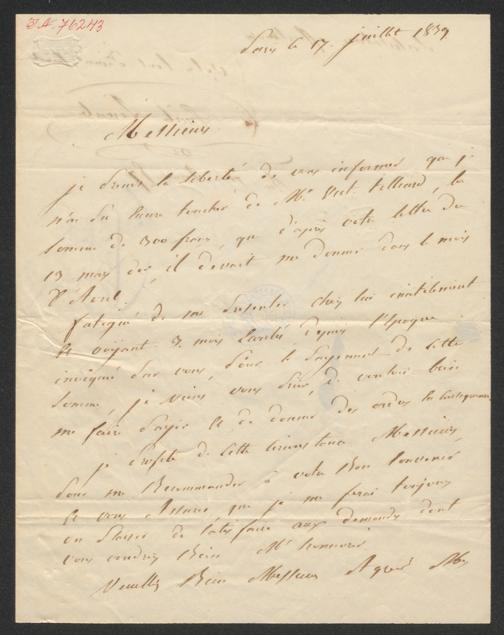 J.A. 76243
Paris le 17 juillet 1839
Messieurs
je prends la liberté de vous informer que je
n'ai pu encore toucher de Mr. la
somme de 300 francs, que d'après votre lettre du
13 mars il devait me donner dans le mois
d'Avril.
fatigué de me présenter chez lui inutilement
et voyant 3 mois écoulés depuis l'époque
indiqué par vous, pour le payement de cette
somme, je viens vous prier, de vouloir bien
me faire payer et de donner des ordres en conséquence
je profite de cette circonstance Messieurs,
pour me Recommander à votre Bon souvenir
et vous assurer, que je me ferai toujours
un plaisir de satisfaire aux demandes dont
vous voudrez Bien M'honorer
Veuillez Bien Messieurs Agréer